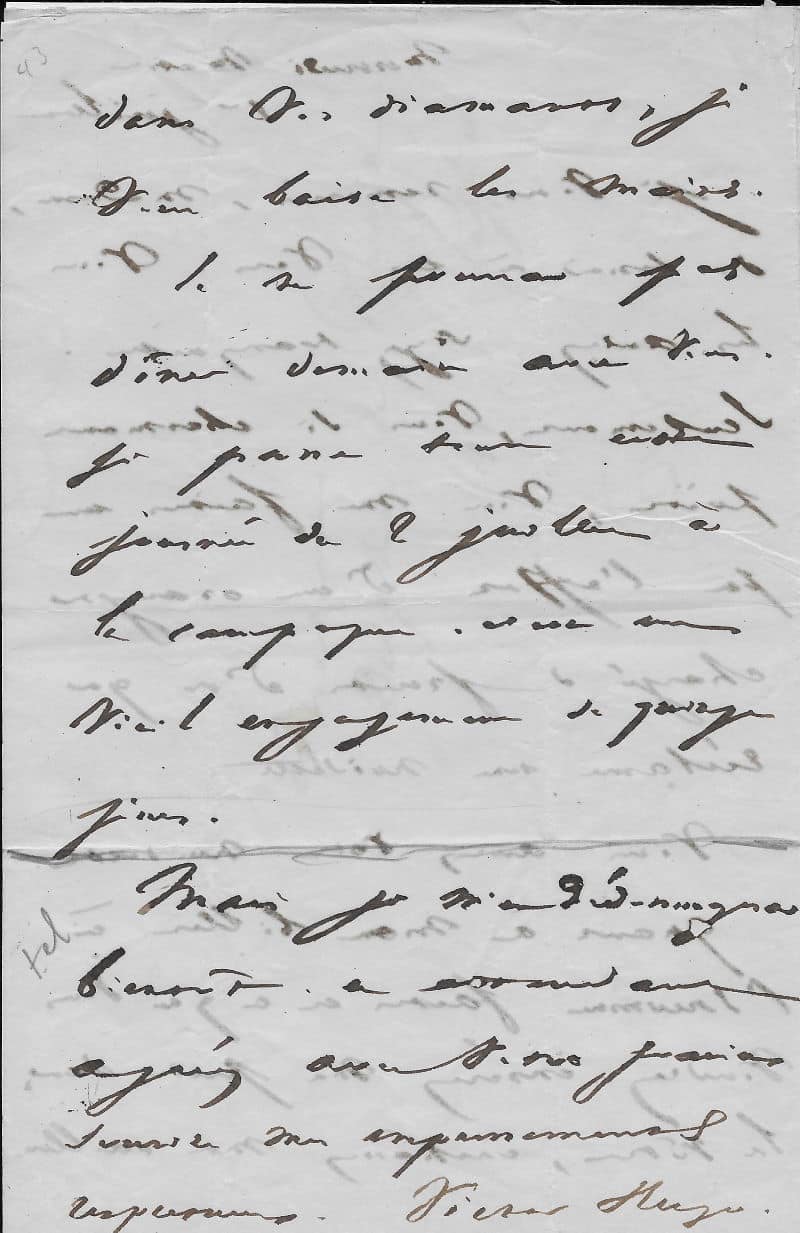 43
dans vos diamants, je
vous baise les mains.
Je ne pourrai pas
dîner demain avec vous.
Je passe toute cette
journée du 2 juillet à
la campagne. C'est un
vieil engagement de quinze
jours.
Mais je m'en dédommagerai
bientôt. En attendant
agréez avec votre gracieux
sourire mes empressements
respectueux. Victor Hugo.